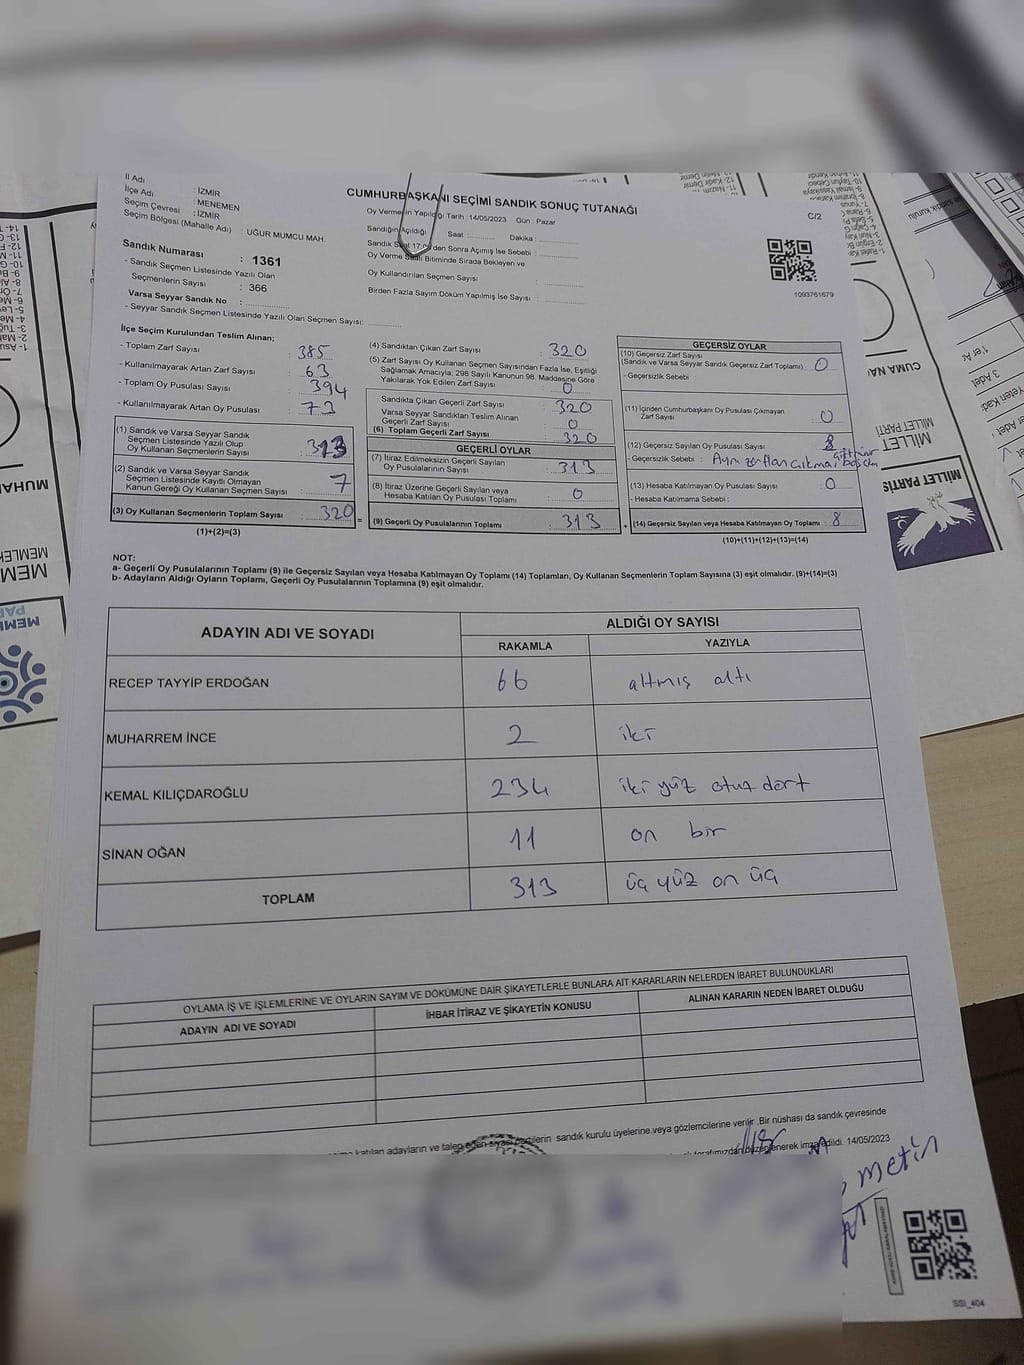 CUMHURBAŞKANI SEÇİMİ SANDIK SONUÇ TUTANAĞI
C/2
İl Adı : İZMİR
İlçe Adı : MENEMEN
Seçim Çevresi : İZMİR
Seçim Bölgesi (Mahalle Adı) : UĞUR MUMCU MAH.
Oy Vermenin Yapıldığı Tarih : 14/05/2023 Gün : Pazar
Sandığın Açıldığı Saat : Dakika :
Sandık Saat 17:00'den Sonra Açılmış İse Sebebi :
Oy Verme Saati Bitiminde Sırada Bekleyen ve
Oy Kullandırılan Seçmen Sayısı :
Birden Fazla Sayım Döküm Yapılmış İse Sayısı :
1093761679
Sandık Numarası : 1361
- Sandık Seçmen Listesinde Yazılı Olan
Seçmenlerin Sayısı : 366
Varsa Seyyar Sandık No :
- Seyyar Sandık Seçmen Listesinde Yazılı Olan Seçmen Sayısı:
İlçe Seçim Kurulundan Teslim Alınan;
- Toplam Zarf Sayısı : 385
- Kullanılmayarak Artan Zarf Sayısı : 63
- Toplam Oy Pusulası Sayısı : 394
- Kullanılmayarak Artan Oy Pusulası : 73
(1) Sandık ve Varsa Seyyar Sandık
Seçmen Listesinde Yazılı Olup
Oy Kullanan Seçmen Sayısı : 313
(2) Sandık ve Varsa Seyyar Sandık
Seçmen Listesinde Kayıtlı Olmayan
Kanun Gereği Oy Kullanan Seçmen Sayısı : 7
(3) Oy Kullanan Seçmenlerin Toplam Sayısı : 320
(1)+(2)=(3)
(4) Sandıktan Çıkan Zarf Sayısı : 320
(5) Zarf Sayısı Oy Kullanan Seçmen Sayısından Fazla İse, Eşitliği
Sağlamak Amacıyla, 298 Sayılı Kanunun 98. Maddesine Göre
Yakılarak Yok Edilen Zarf Sayısı : 0
Sandıkta Çıkan Geçerli Zarf Sayısı : 320
Varsa Seyyar Sandıktan Teslim Alınan
Geçerli Zarf Sayısı : 0
(6) Toplam Geçerli Zarf Sayısı : 320
GEÇERLİ OYLAR
(7) İtiraz Edilmeksizin Geçerli Sayılan
Oy Pusulalarının Sayısı : 313
(8) İtiraz Üzerine Geçerli Sayılan veya
Hesaba Katılan Oy Pusulası Toplamı : 0
(9) Geçerli Oy Pusulalarının Toplamı : 313
GEÇERSİZ OYLAR
(10) Geçersiz Zarf Sayısı
(Sandık ve Varsa Seyyar Sandık Geçersiz Zarf Toplamı) : 0
- Geçersizlik Sebebi :
(11) İçinden Cumhurbaşkanı Oy Pusulası Çıkmayan
Zarf Sayısı : 0
(12) Geçersiz Sayılan Oy Pusulası Sayısı : 8
- Geçersizlik Sebebi : Aynı zarftan çıkma,
(13) Hesaba Katılmayan Oy Pusulası Sayısı : 0
- Hesaba Katılmama Sebebi :
(14) Geçersiz Sayılan veya Hesaba Katılmayan Oy Toplamı : 8
(10)+(11)+(12)+(13)=(14)
NOT:
a- Geçerli Oy Pusulalarının Toplamı (9) ile Geçersiz Sayılan veya Hesaba Katılmayan Oy Toplamı (14) Toplamları, Oy Kullanan Seçmenlerin Toplam Sayısına (3) eşit olmalıdır. (9)+(14)=(3)
b- Adayların Aldığı Oyların Toplamı, Geçerli Oy Pusulalarının Toplamına (9) eşit olmalıdır.
ADAYIN ADI VE SOYADI
ALDIĞI OY SAYISI
RAKAMLA YAZIYLA
RECEP TAYYİP ERDOĞAN 66 altmış altı
MUHARREM İNCE 2 iki
KEMAL KILIÇDAROĞLU 234 iki yüz otuz dört
SİNAN OĞAN 11 on bir
TOPLAM 313 üç yüz on üç
OYLAMA İŞ VE İŞLEMLERİNE VE OYLARIN SAYIM VE DÖKÜMÜNE DAİR ŞİKAYETLERLE BUNLARA AİT KARARLARIN NELERDEN İBARET BULUNDUKLARI
ADAYIN ADI VE SOYADI
İHBAR İTİRAZ VE ŞİKAYETİN KONUSU
ALINAN KARARIN NEDEN İBARET OLDUĞU
katılan adayların ve talep eden siyasi partilerin sandık kurulu üyelerine veya gözlemcilerine verilir. Bir nüshası da sandık çevresinde
tarafımızdan düzenlenerek imza edildi. 14/05/2023
metin
SSI_404
MİLLET PARTİSİ
MİLLET PARTİ
MİLLET
CUMA NA
MUHA
MEMLEK
MEM